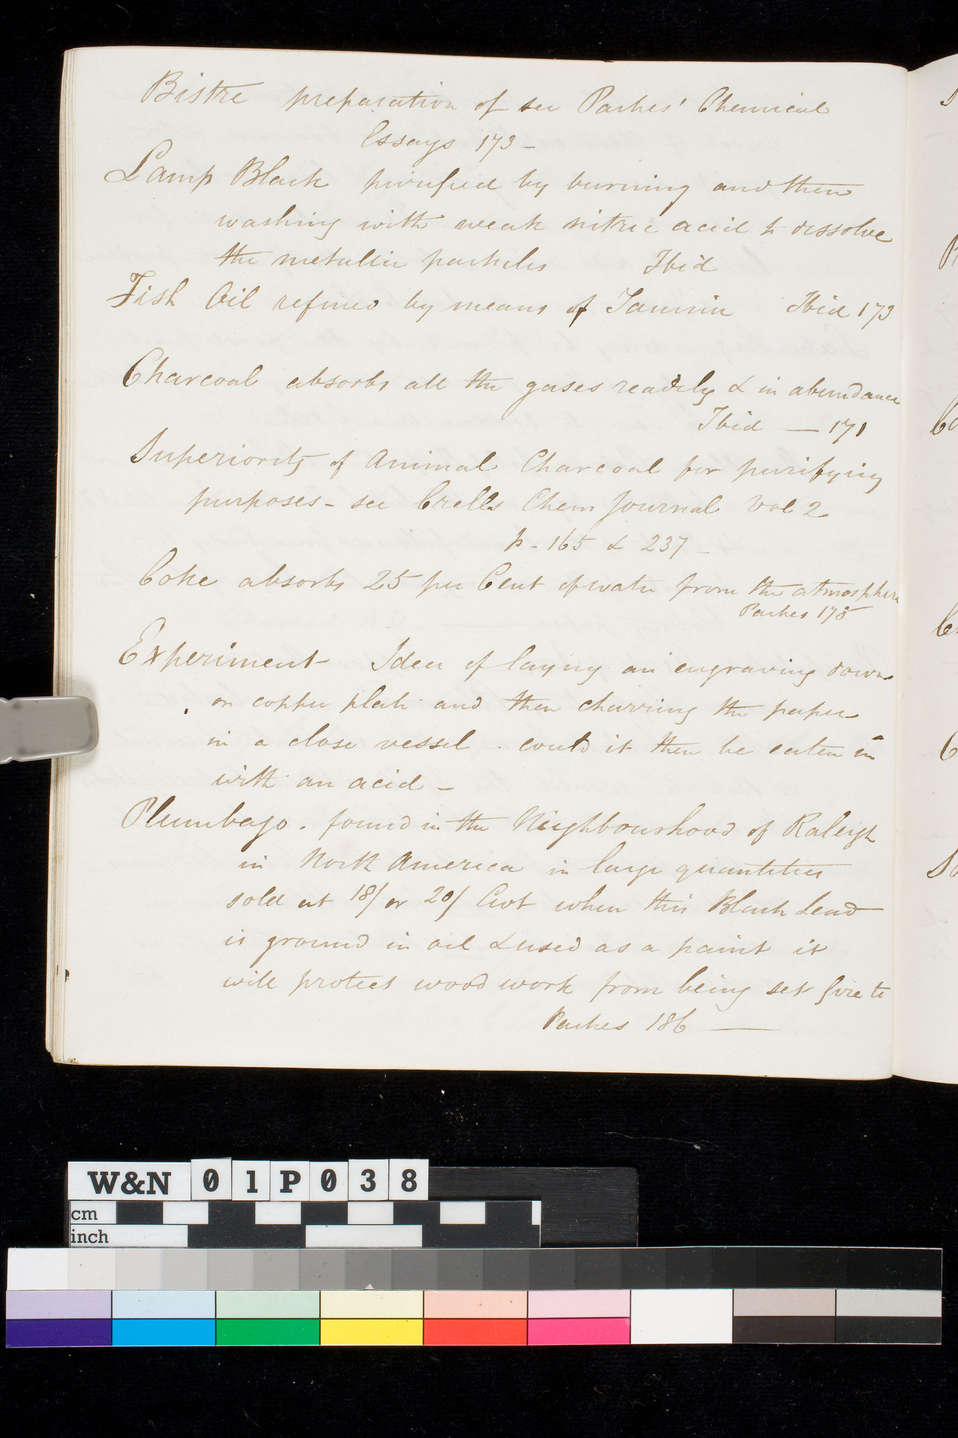 Bistre preparation of see Parkes' Chemical
Essays 173 -
Lamp Black purified by burning and then
washing with weak nitric acid to dissolve
the metallic particles Ibid
Fish Oil refined by means of Tannin Ibid 173
Charcoal absorbs all the gases readily & in abundance
Ibid — 171
Superiority of Animal Charcoal for purifying
purposes - see Crells Chem Journal Vol 2
p - 165 & 237 -
Coke absorbs 25 per Cent of water from the atmosphere
Parkes 178
Experiment - Idea of laying an engraving down
on copper plate and then charring the paper
in a close vessel . could it then be eaten in
with an acid -
Plumbago . found in the Neighbourhood of Raleigh
in North America in large quantities
sold at 18/ or 20/ Cwt when this Black Lead
is ground in oil & used as a paint it
will protect wood work from being set fire to
Parkes 186 —
W&N 01P038
cm
inch